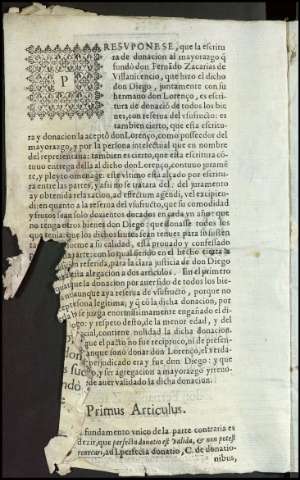 PRESVPONESE, que la escritu
ra de donacion al mayorazgo q̃
fundò don Fernãdo Zacarias de
Villauicencio, que hizo el dicho
don Diego, juntamente con su
hermano don Lorenço, es escri
tura de donacio de todos los bie
nes, con reserua del vsufructo: es
tambien cierto, que esta escritu
ra y donacion la aceptò don Lorenço, como posseedor del
mayorazgo, y por la persona intelectual que en nombre
del representaua: tambien es cierto, que esta escritura cõ-
tituto entrega della al dicho don Lorenço, contuuo juramẽ
to, y pleyto omenage: este vltimo està alçado por escritu
ra entre las partes, y assi no se tratarà del: del juramento
ay obtenida relaxacion, ad effectum agendi, vel excipiẽ
di: en quanto a la reserua del vsufructo, que su comodidad
y frutos sean solo dozientos ducados en cada vn año: que
no tenga otros bienes don Diego: que donasse todos los
que tenia: que los dichos frutos sean tenues para su susten
conforme a su calidad, està prouado y confessado
parte: con lo qual siendo en el hecho cierta la
referida, para la clara justicia de don Diego
alegacion a dos articulos. En el primero
qualque la donacion por auersido de todos los bie-
aunque aya reserua de vsufructo, porque no
legitima; y q̃ cõ la dicha donacion, por
se juzga enormissimamente engañado el di-
go: y respeto desto, de la menor edad, y del
cial, contiene nulidad la dicha donacion.
que el pacto no fue reciproco, ni de presen-
anque sonò donar don Lorenço, el verda-
perjudicado era y fue don Diego: y que
y ser agregacion a mayorazgo y reno-
de auer validado la dicha donacion.
Primus Articulus.
fundamento vnico de la parte contraria es
dezir, que perfecta donatio est valida, & non potest
reuocari, ad l. perfecta donatio, C. de donatio-
nibus,